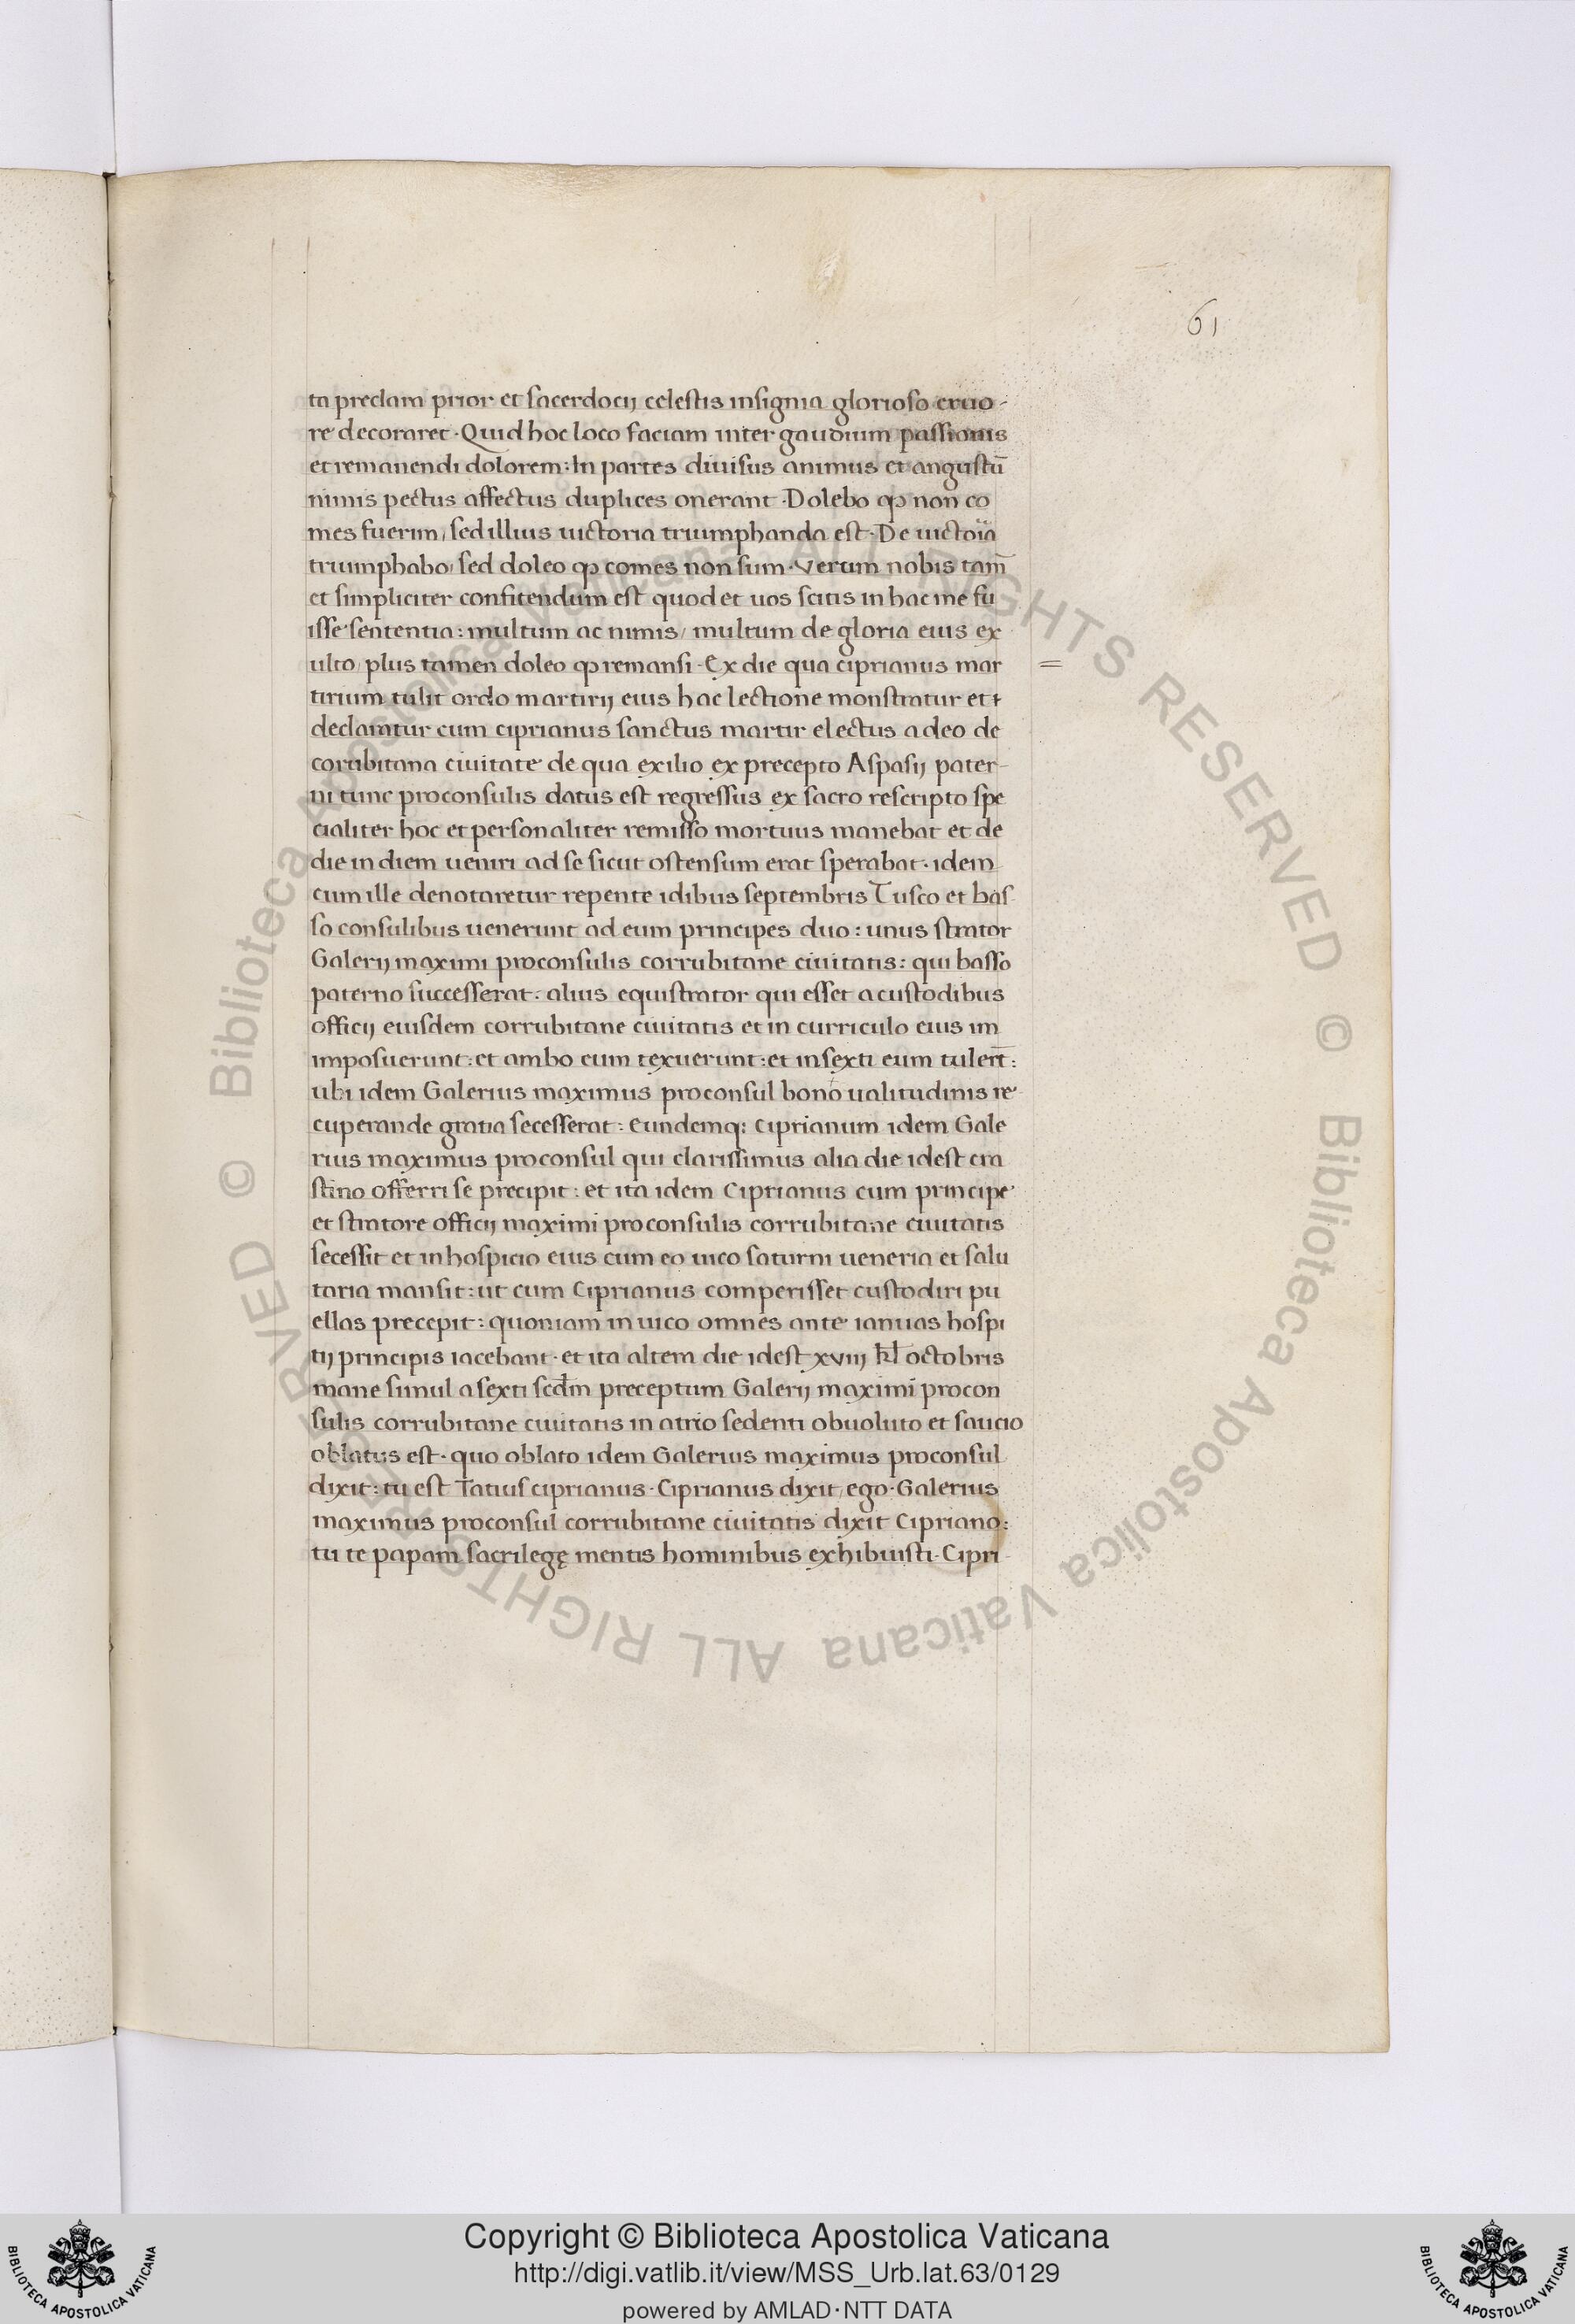 61
ta preclara prior et sacerdocij celestis insignia glorioso cruo-
re decoraret · Quid hoc loco faciam inter gaudium passionis
et remanendi dolorem: In partes diuisus animus et angustū
nimis pectus affectus duplices onerant · Dolebo ꝙ non co
mes fuerim / sed illius uictoria triumphanda est · De uictoia
triumphabo / sed doleo ꝙ comes non sum · Verum nobis tam̄
et simpliciter confitendum est quod et uos scitis in hac me fu
isse sententia: multum ac nimis / multum de gloria eius ex
ulto / plus tamen doleo ꝙ remansi · Ex die qua ciprianus mar
tirium tulit ordo martirij eius hac lectione monstratur et
declaratur cum ciprianus sanctus martir electus a deo de
corubitana ciuitate de qua exilio ex precepto Aspasij pater-
ni tunc proconsulis datus est regressus ex sacro rescripto spe
cialiter hoc et personaliter remisso mortuus manebat et de
die in diem ueniri ad se sicut ostensum erat sperabat · idem
cum ille denotaretur repente idibus septembris Tusco et bas
so consulibus uenerunt ad eum principes duo: unus strator
Galerij maximi proconsulis corrubitane ciuitatis: qui basso
paterno successerat · alius equistrator qui esset a custodibus
officij eiusdem corrubitane ciuitatis et in curriculo eius im
imposuerunt: et ambo eum texuerunt: et in sexti eum tulert̄:
ubi idem Galerius maximus proconsul bono ualitudinis re
cuperande gratia secesserat: Eundemq: Ciprianum idem Gale
rius maximus proconsul qui clarissimus alia die idest cra
stino offerri se precipit: et ita idem Ciprianus cum principe
et stratore officij maximi proconsulis corrubitane ciuitatis
secessit et in hospicio eius cum eo uico saturni ueneria et salu
taria mansit: ut cum Ciprianus comperisset custodiri pu
ellas precepit: quoniam in uico omnes ante ianuas hospi
tij principis iacebant · et ita altera die idest xviij kl̄ octobris
mane simul a sexti scd̄m preceptum Galerij maximi procon
sulis corrubitane ciuitatis in atrio sedenti obuoluto et saucio
oblatus est · quo oblato idem Galerius maximus proconsul
dixit: tu est Tatius ciprianus · Ciprianus dixit / ego · Galerius
maximus proconsul corrubitane ciuitatis dixit Cipriano:
tu te papam sacrilegę mentis hominibus exhibuisti · Cipri-
© Biblioteca Apostolica Vaticana ALL RIGHTS RESERVED © Biblioteca Apostolica Vaticana ALL RIGHTS RESERVED
BIBLIOTECA APOSTOLICA VATICANA
Copyright © Biblioteca Apostolica Vaticana
http://digi.vatlib.it/view/MSS_Urb.lat.63/0129
powered by AMLAD·NTT DATA
BIBLIOTECA APOSTOLICA VATICANA